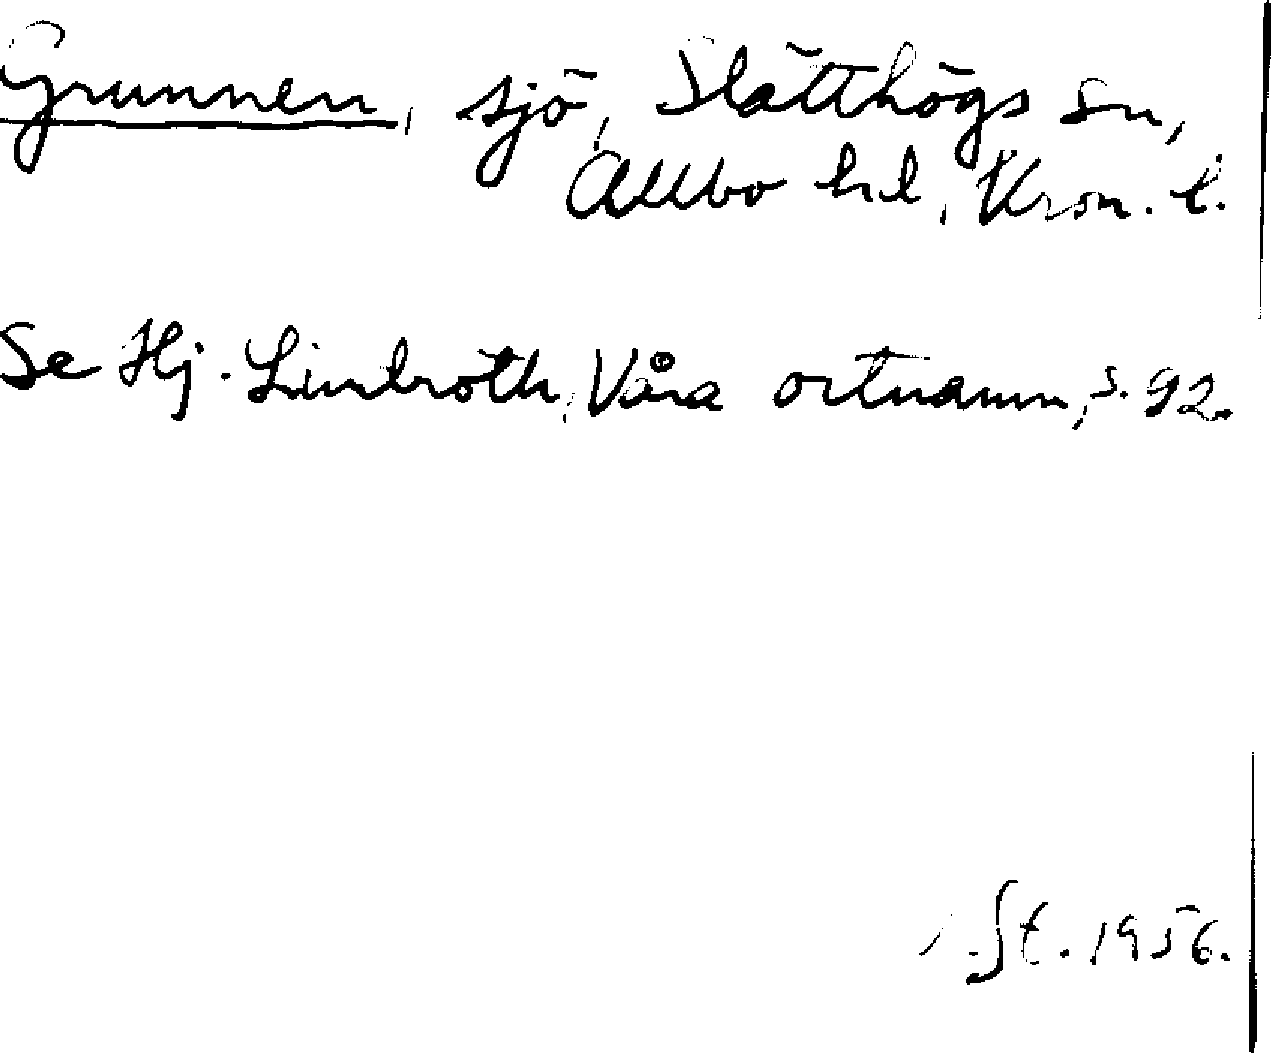 Grunnen, sjö, Slätthögs sn,
Allbo hd, Kron. l.
Se Hj. Lindroth, Våra ortnamn, s. 92.
St. 1956.